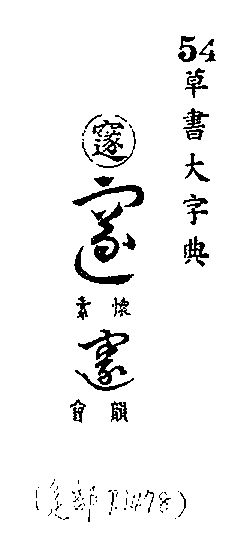 54
草書大字典
邃
邃
懷素
邃
韻會
(辵部 P.1478)